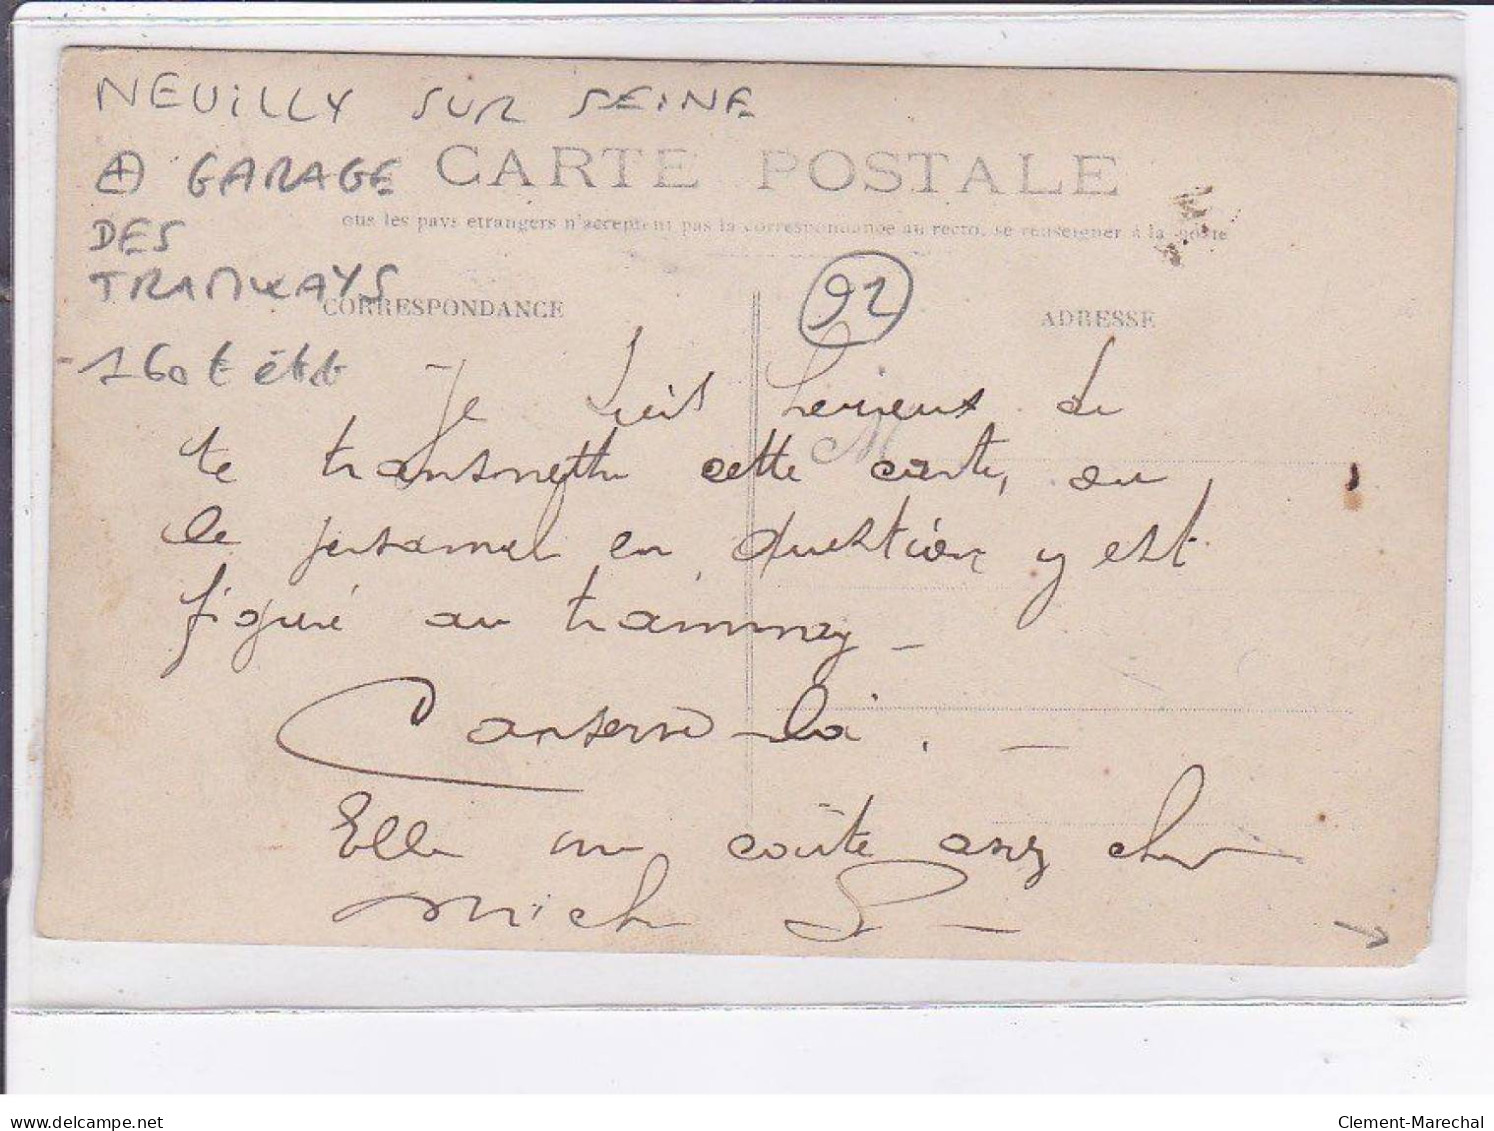 NEUILLY SUR SEINE
GARAGE
CARTE POSTALE
DES
ous les pays étrangers n'acceptent pas la correspondance au recto, se renseigner à la poste
TRAMWAYS
CORRESPONDANCE
92
ADRESSE
-160 t état
Je suis heureux de
te transmettre cette carte, ou
le personnel en question y est
figuré au tramway -
Conserve-la. -
Elle me coûte assez cher
Mich
delcampe.net
Clement-Marechal